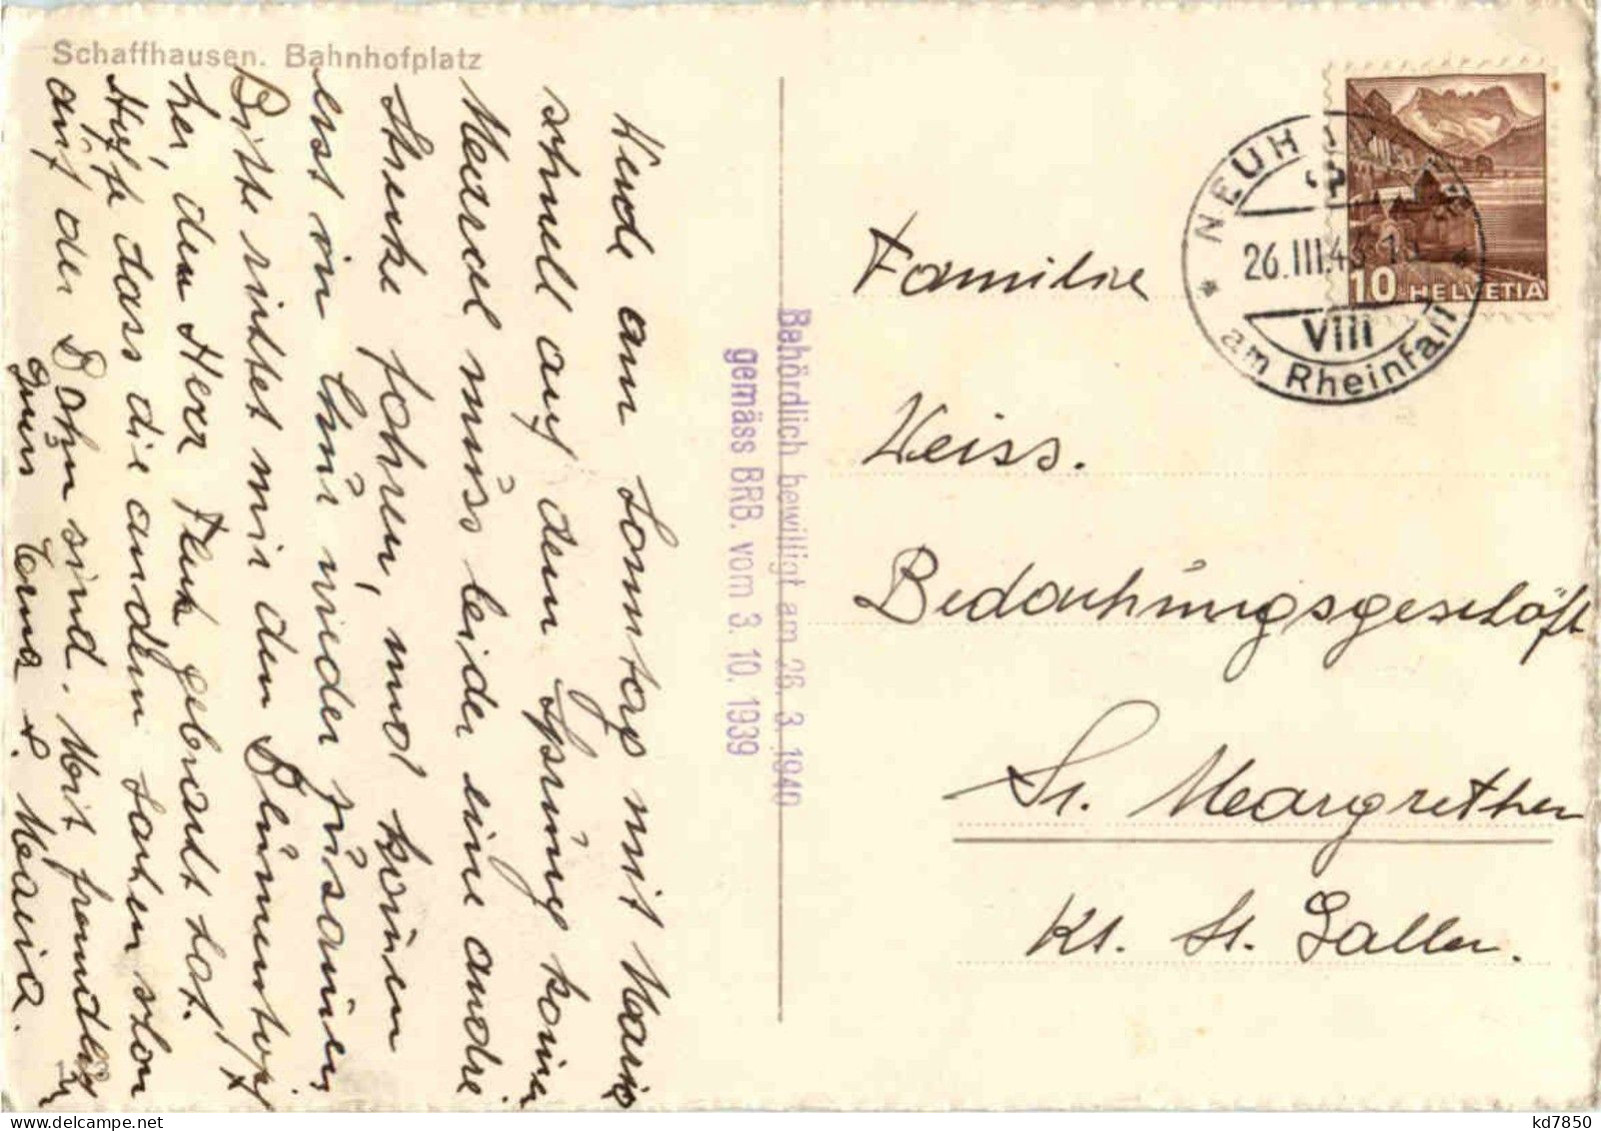 Schaffhausen. Bahnhofplatz
Werde am Sonntag mit Maria
schnell auf dem Sprung komen
Meardel muss leider eine andre
Strecke fahren, und komen
erst in Chur wieder zusamen
Bitte richtet mir den Blumentopf
her, den Herr Fleck gebracht hat.
Hoffe dass die andern Sachen schon
auf der Bahn sind. Mit freundlich
Gruss Erna &. Maria.
Behördlich bewilligt am 26. 3. 1940
gemäss BRB. vom 3. 10. 1939
NEUHAUSEN
26.III.43
VIII
am Rheinfall
10 HELVETIA
Familie
Weiss.
Bedachungsgeschäft
St. Margrethen
Kt. St. Gallen.
kd7850